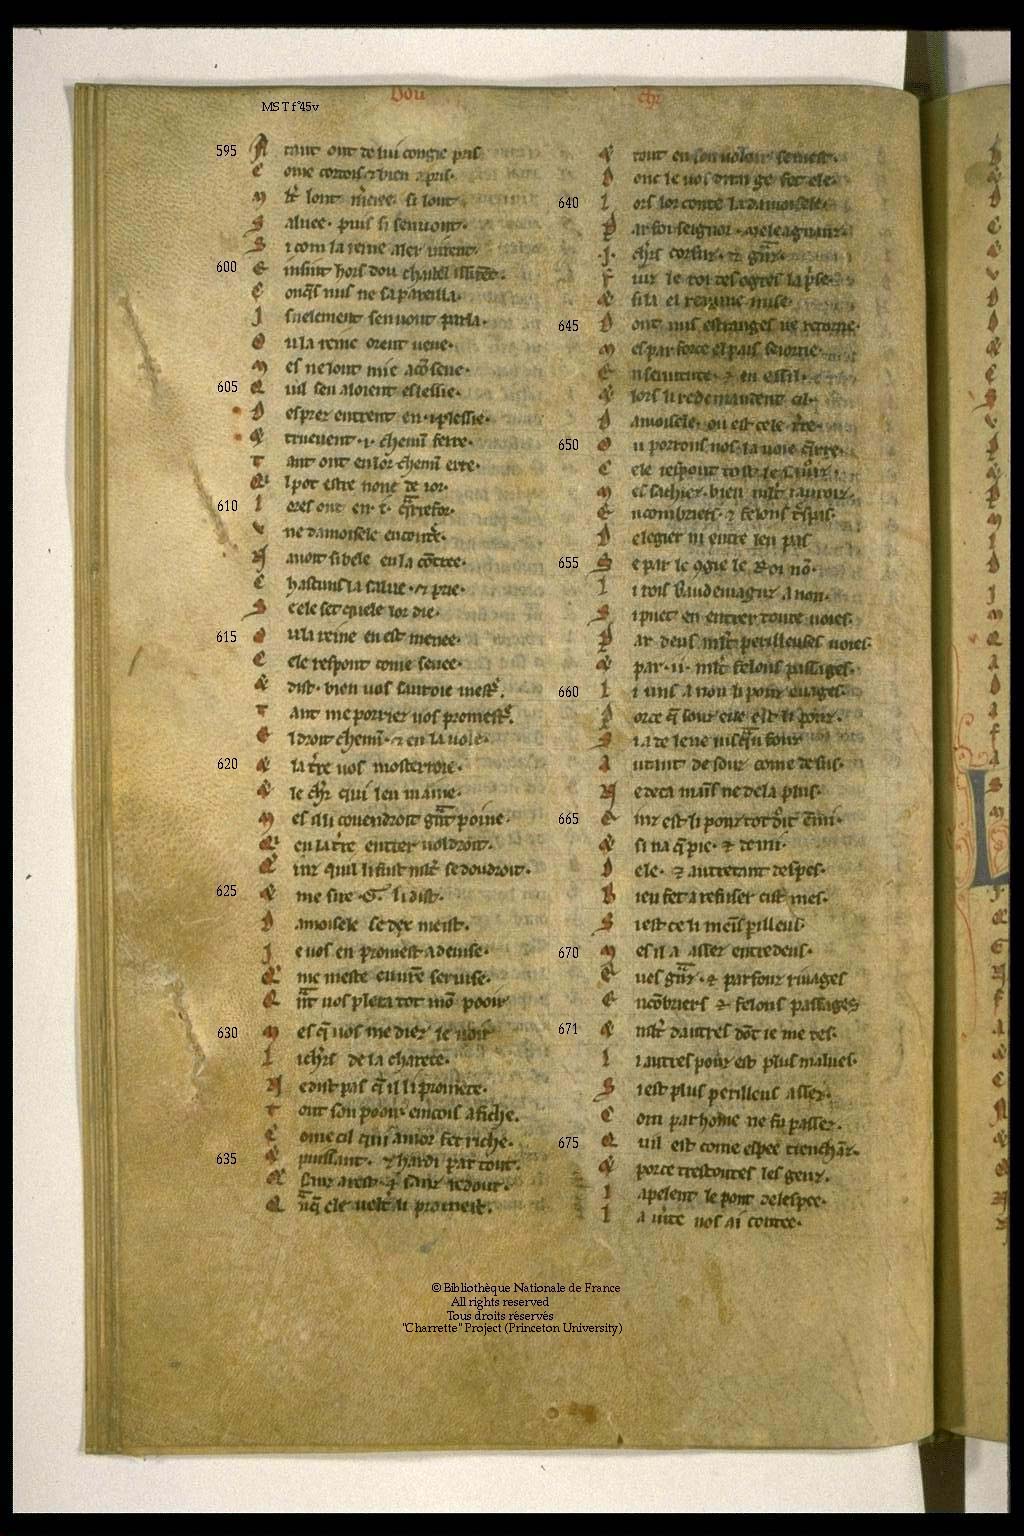 Dou
chr
MS T f°45v
595
A tant ont de lui congie pris
C ome cortois ⁊ bien apris·
M lt' lont m'cie· si lont
S aluee· puis si senuont·
S i com la reine aler uirent
600
E
C onq̃s nus ne sapareilla·
I snelement senuont par la·
O u la reine orent ueue·
M es ne lont mie acõseue·
605
Q uil sen aloient
D es prez entrent en ·i· plessie·
& trueuent ·i· chemin ferre·
T ant ont en lor chemin erre·
Q l pot estre none de ior·
610
L ores ont en ·i· q̃rrefor·
V ne damoisele encontre·
M auoit si bele en la cõtree·
C hascuns la salue· ⁊ prie·
S e ele set quele lor die·
615
O u la reine en est menee·
E ele respont come senee·
& dist· bien uos sauroie mestre·
T ant me porriez uos promestre·
E l droit chemin· ⁊ en la uoie·
620
& la t're uos mosterroie·
& le ch'r qui len maine·
M es il i couendroit g̃nt poine·
Q en la t're entrer uoldroit·
Q inz quil li fust mlt' se doudroit·
625
& me sire ·G· li dist·
D amoisele se dex meist·
I e uos en promest a deuise·
Q me meste en uostre seruise·
Q nt uos plera tot mõ pooir
630
M es q̃ uos me diez le uoir
L i ch'rs de la charete·
N e dist pas q̃ il li promete·
T out son pooir eincois afiche·
C ome cil qui amor fet riche·
635
& puissant· ⁊ hardi par tout·
Q sanz arest· ⁊ sanz redout·
Q nq̃ ele uelt li promest·
& tout en son uoloir se mest·
D onc le uos dirai ge fet ele·
640
L ors lor conte la damoisele·
P ar foi seignor· meleaganz·
·I· ch'rs corsuz· ⁊ g̃nz·
F iuz le roi des ogres la prise·
& si la el regne mise·
645
D ont nus estranges ne retorne·
M es par force el pais seiorne·
E n seruitute· ⁊ en essil·
& lors li redemandent cil·
D amoisele· ou est cele t're·
650
O u porrons nos la uoie q̃rre·
E ele respont tost le saurez·
M es sachiez· bien mlt' i auroiz·
E ncombriers· ⁊ felons t'spas·
D e legier ni entre len pas
655
S e par le 9gie le Roi nõ·
L i rois Baudemaguz a non·
S i puet en entrer toutes uoies·
P ar deus mlt' perilleuses uoies·
& par ·ii· mlt' felons passages·
660
L i uns a non li ponz euages·
P orce q̃ souz eue est li ponz·
S i a de leue iusq̃u fonz
A utant desouz come desus·
N e deca mains ne dela plus·
665
E inz est li ponz tot droit enmi·
& si na q̃ pie· ⁊ demi·
D e le· ⁊ autretant despes·
B ien fet a refuser cist mes·
S i est ce li meins perilleus·
670
M es il a assez entredeus·
E ues g̃nz· ⁊ parfonz riuages
E ncõbriers ⁊ felons passages
671
& mlt' dautres dõt ie me tes·
L i autres ponz est plus malues·
S i est plus perilleus assez·
C om par home ne fu passez·
675
Q uil est come espee trenchãz·
& por ce trestoutes les genz·
L apelent le pont de lespee·
L a uerite uos ai contee·
© Bibliothèque Nationale de France
All rights reserved
Tous droits réservés
"Charrette" Project (Princeton University)